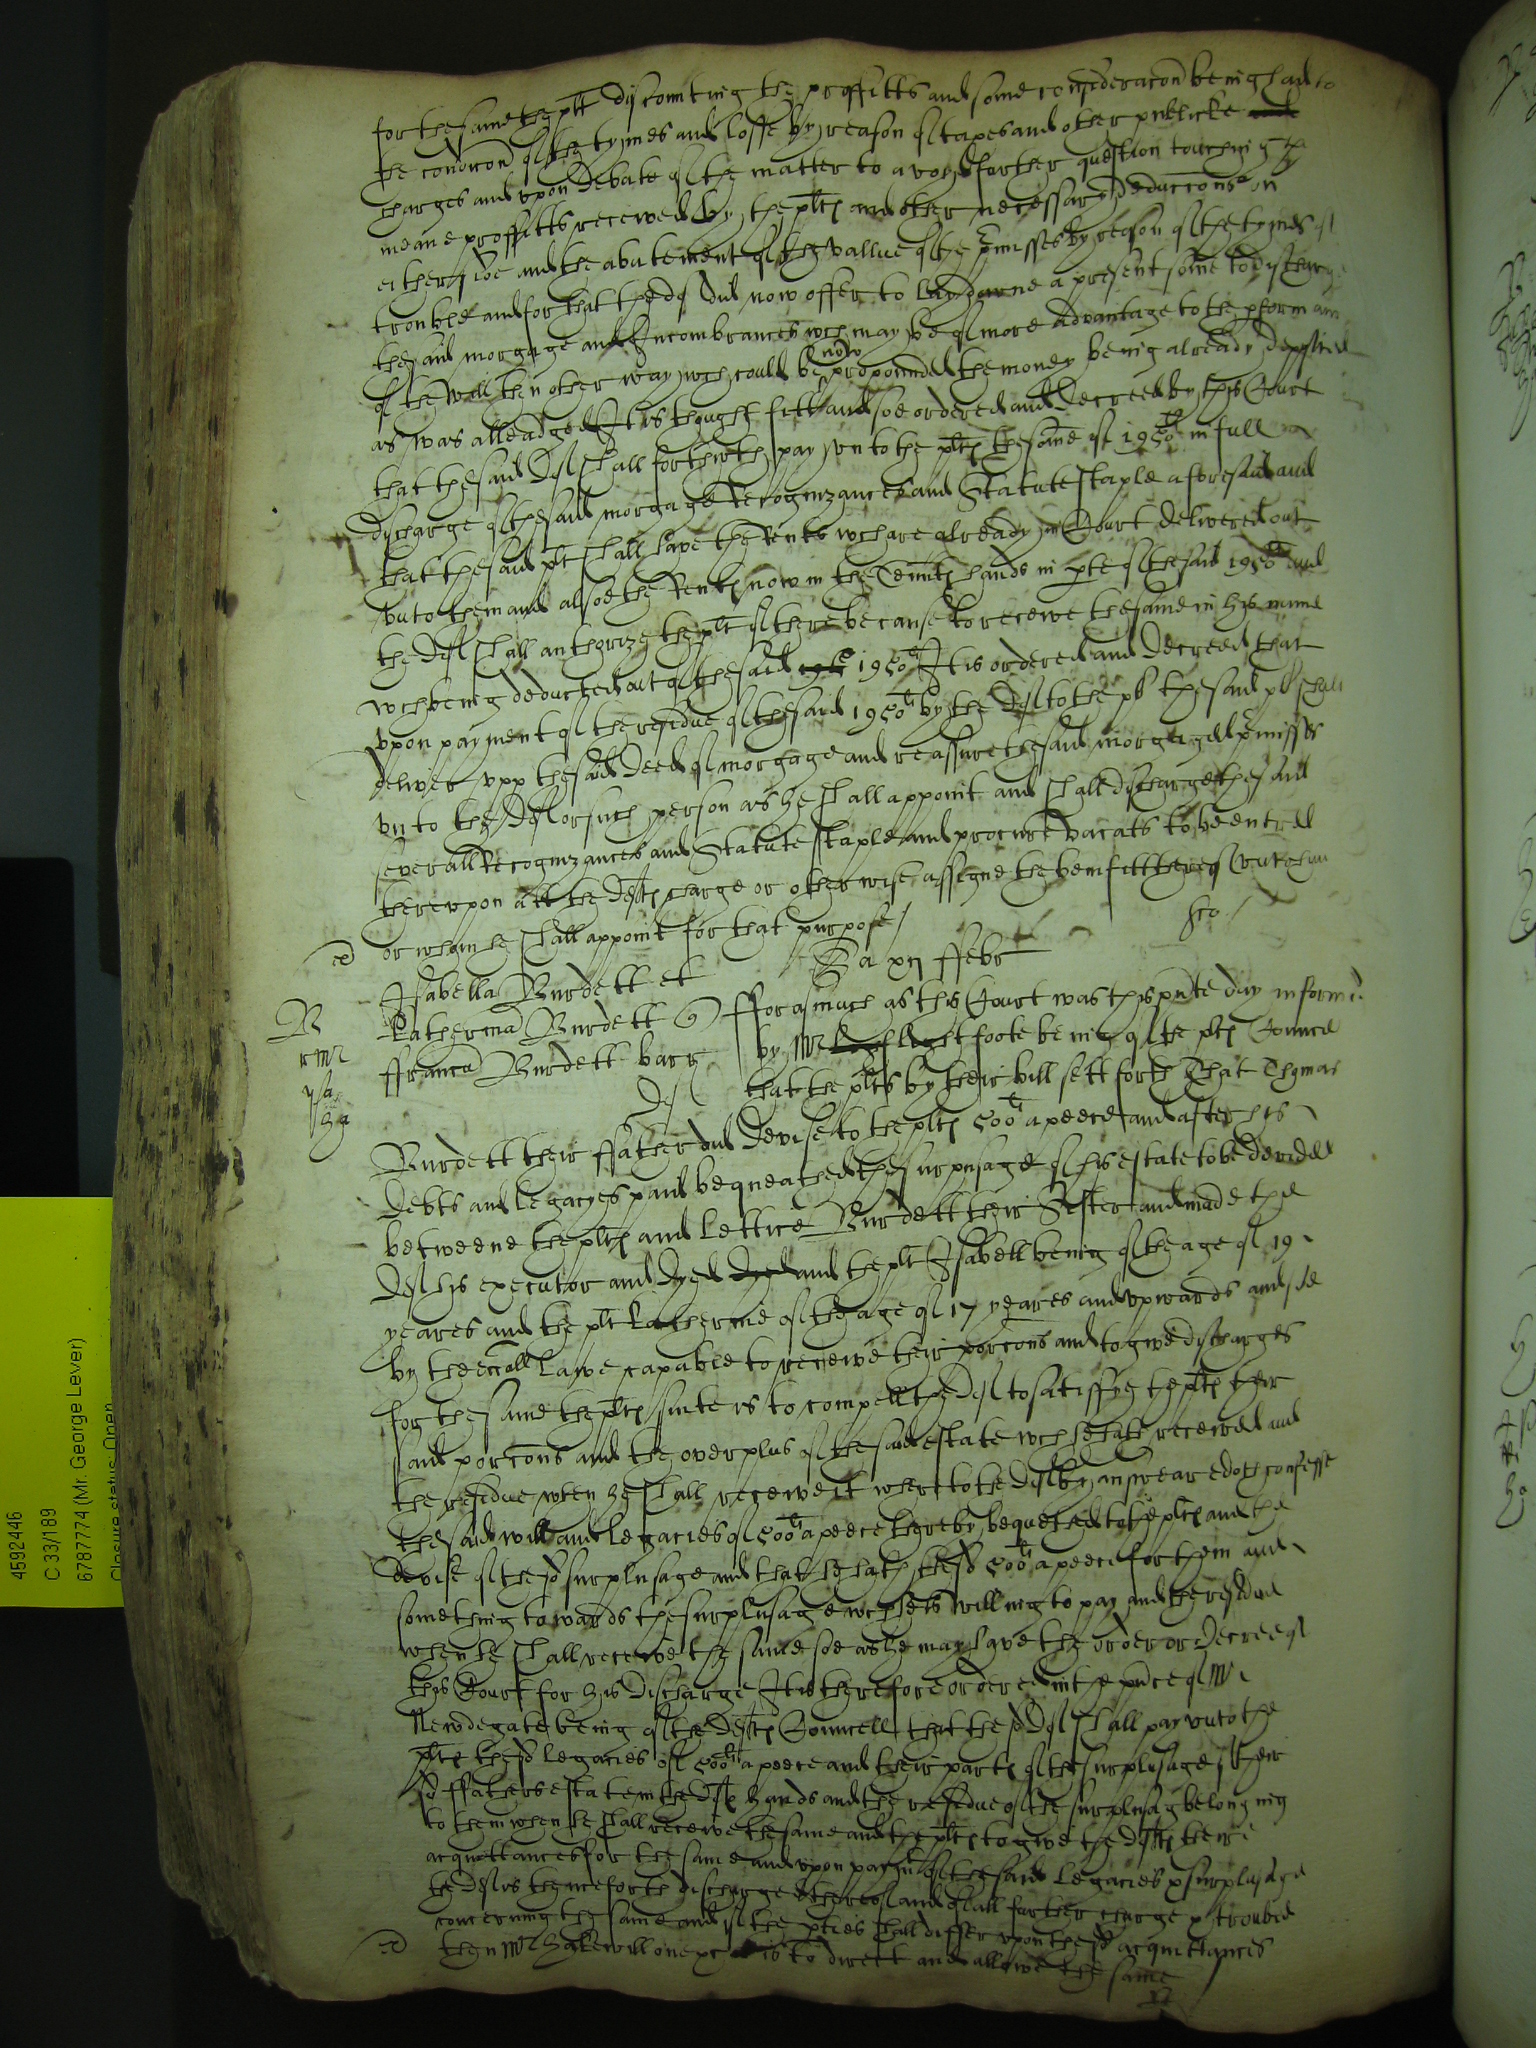 for the same the plt discomting the proffitts and some consideracon being had to
the condicon of the tymes and losse by reason of taxes and other publicke
charges and vpon debate of the matter to avoyd further question touching the
meane proffitts received by the plts and other necessary deduccons on
either side and the abatement of the vallue of the pmisses by reason of the tymes of
trouble and for that the deft did now offer to lay downe a present some to discharge
the said morgage and Incombrances wch may be of more advantage to the pformance
of the will then other way wch could be now propounded the money being already deposited
as was alleadged It is thought fitt and soe ordered and decreed by this Court
that the said deft shall forthwth pay vnto the plts the some of 1950li in full
discharge of the said morgage Recognizances and Statute staple aforesaid and
that the said plt shall have the Rents wch are already in Court delivered out
vnto them and alsoe the Rents now in the Tennts hands in pte of the said 1950li and
the deft shall authorize the plt if there be cause to receive the same in his name
wch being deducted out of the said 1950li It is ordered and decreed that
vpon payment of the residue of the said 1950li by the deft to the plt the said plt shall
deliver vpp the said deed of morgage and reassure the said morgaged pmisses
vnto the deft or such person as he shall appoint and shall discharge the said
severall Recognizances and Statute staple and procure vacats to be entred
therevpon att the defts charge or otherwise assigne the benifitt thereof vnto him
or whom he shall appoint for that purpose
Isabella Burdett et
Katherina Burdett
Francu Burdett barr
Deft
Sa xij ffebr
Forasmuch as this Court was this pnte day informed
by Mr Lightfoote being of the plts Councell
that the plts by their bill sett forth That Thomas
Burdett their ffather did devise to the plts 500li a peece and after his
debts and legacyes paid bequeathed the surplusage of his estate to be devided
betweene the plts and Lettice Burdett their Sister and made the
deft his executor and dyed and the plt Isabell being of the age of 19
yeares and the plt Katherine of the age of 17 yeares and vpwards and soe
by the eccall lawe capable to receive their porcons and to give discharges
for the same the plts suite is to compell the deft to satisfye the plts their
said porcons and the overplus of the said estate wch he hath received and
the residue when he shall receive it wherto the deft by answeare doth confesse
the said will and legacies of 500li a peece thereby bequethed to the plts and the
devise of the sd surplusage and that he hath the sd 500li a peece for them and
something towards the surplusage wch he is willing to pay and the residue
when he shall receive the same soe as he may have the order or decree of
this Court for his discharge It is therefore ordered in the pnce of Mr
Newdegate being of the defts Councell that the sd deft shall pay vnto the
plts the sd legacies of 500li a peece and their parts of the surplusage of their
sd ffathers estate in the defts hands and the residue of the surplusage belonging
to them when he shall receive the same and the plts to give the deft their
acquittances for the same and vpon paymt of the said legacies & surplusage
the deft is thenceforth discharged thereof and of all further charge & trouble
concerning the same and if the pties shall differ vpon the sd acquittances
then Mr Hakewill one &c is to direct and allowe the same
4592446
C 33/189
6787774 (Mr. George Lever)
Closure status: Open